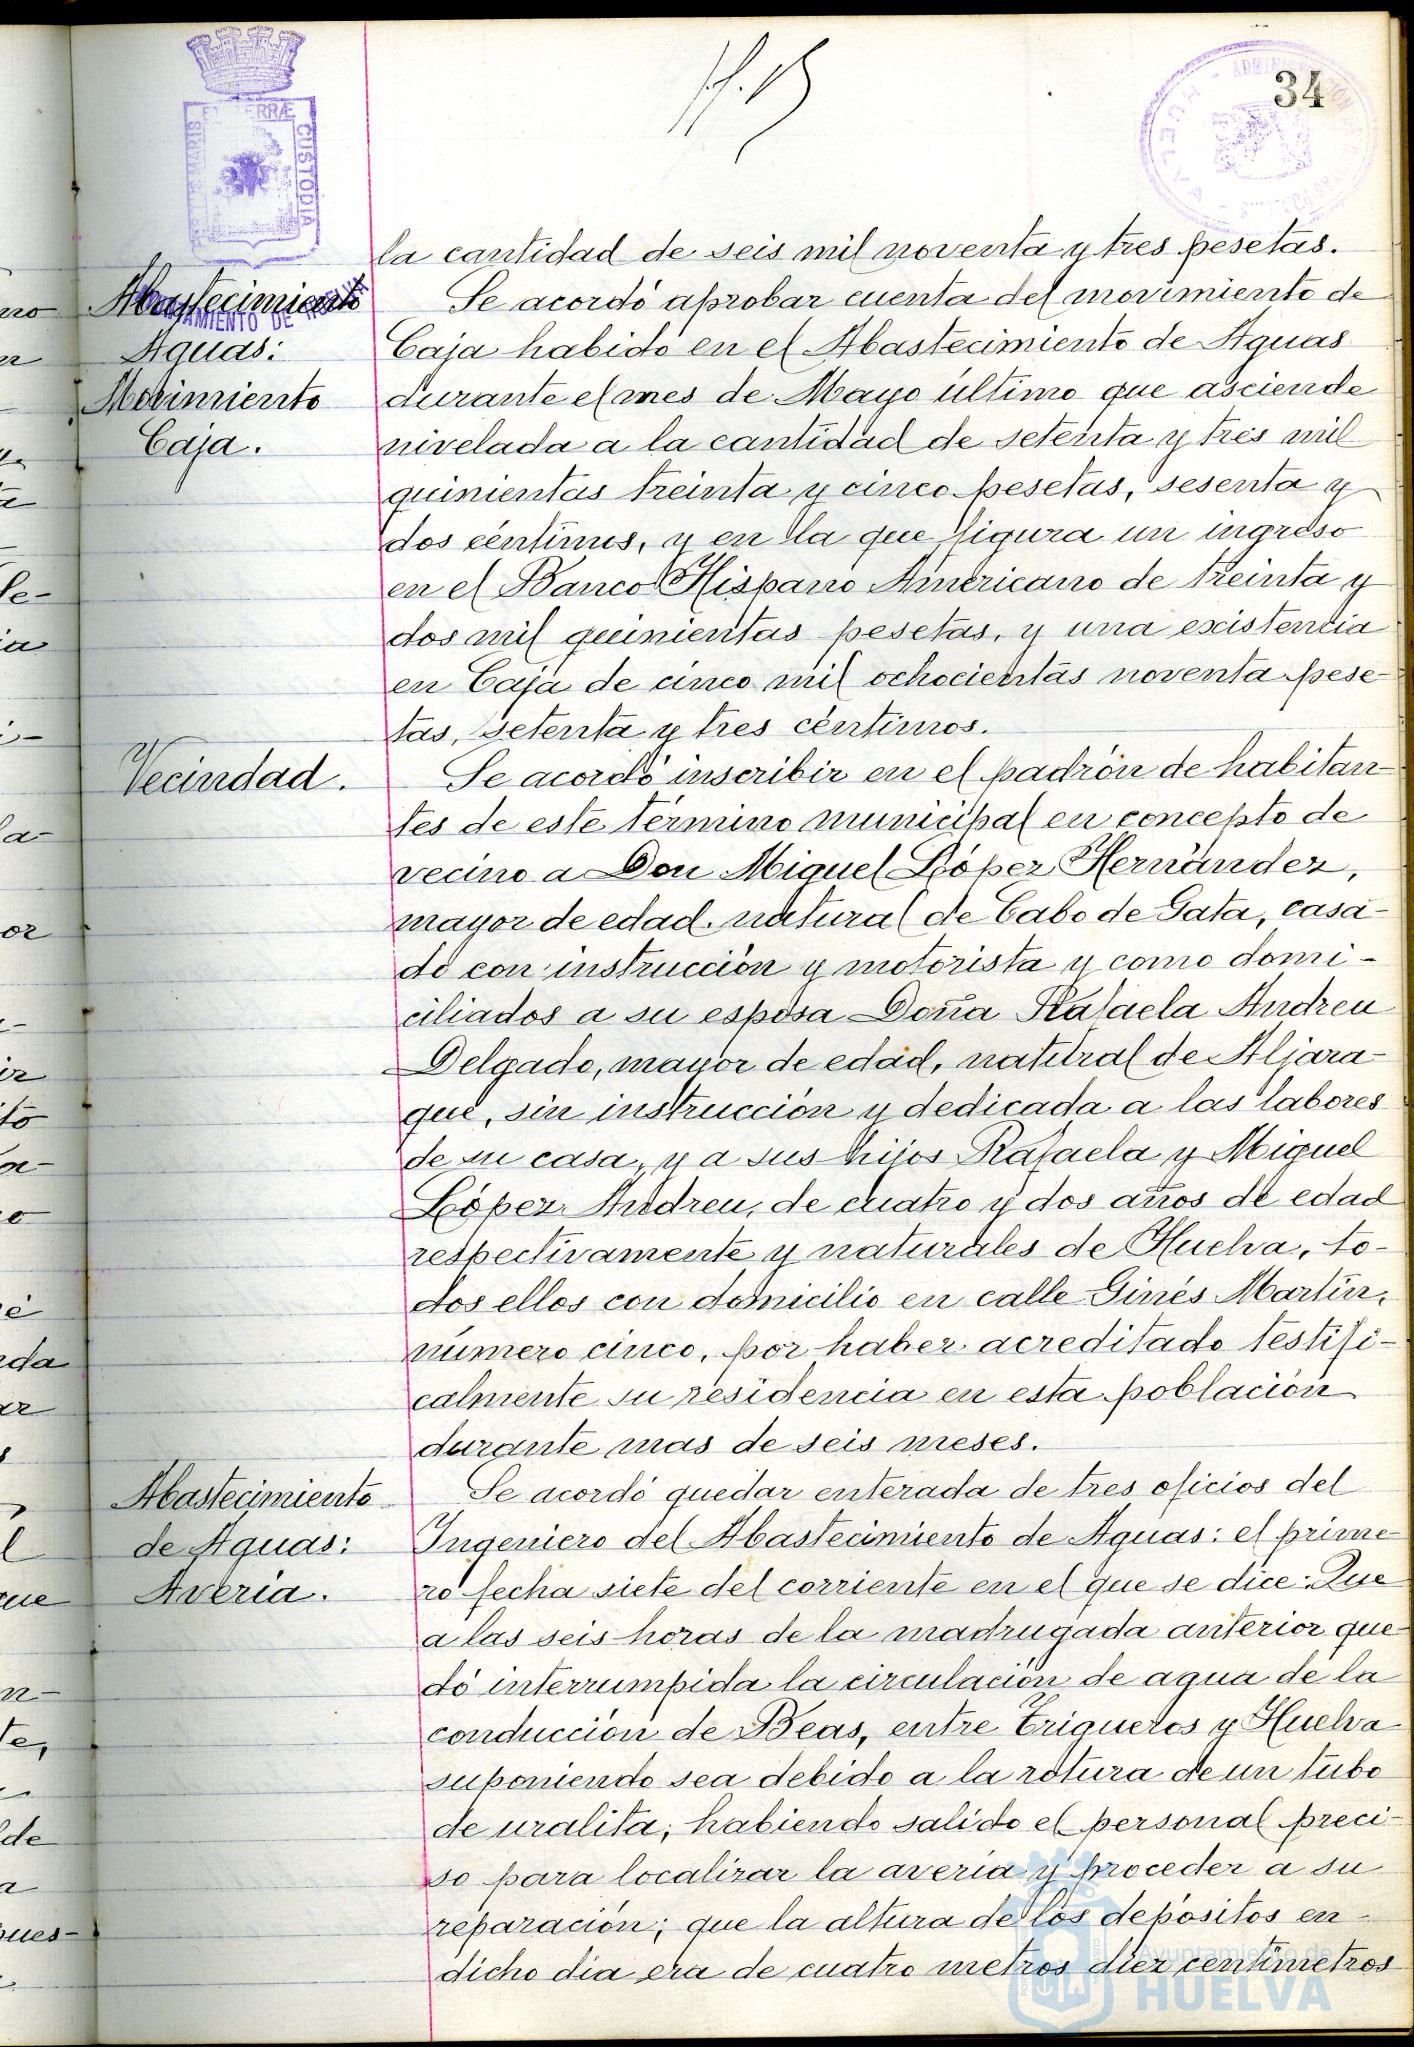 34
la cantidad de seis mil noventa y tres pesetas.
Abastecimiento
Aguas:
Movimiento
Caja.
Se acordó aprobar cuenta del movimiento de
Caja habido en el Abastecimiento de Aguas
durante el mes de Mayo último que asciende
nivelada a la cantidad de setenta y tres mil
quinientas treinta y cinco pesetas, sesenta y
dos céntimos, y en la que figura un ingreso
en el Banco Hispano Americano de treinta y
dos mil quinientas pesetas, y una existencia
en Caja de cinco mil ochocientas noventa pese-
tas, setenta y tres céntimos.
Vecindad.
Se acordó inscribir en el padrón de habitan-
tes de este término municipal en concepto de
vecino a Don Miguel López Hernández,
mayor de edad, natural de Cabo de Gata, casa-
do con instrucción y motorista y como domi-
ciliados a su esposa Doña Rafaela Andreu
Delgado, mayor de edad, natural de Aljara-
que, sin instrucción y dedicada a las labores
de su casa, y a sus hijos Rafaela y Miguel
López Andreu, de cuatro y dos años de edad
respectivamente y naturales de Huelva, to-
dos ellos con domicilio en calle Ginés Martín,
número cinco, por haber acreditado testifi-
calmente su residencia en esta población
durante mas de seis meses.
Abastecimiento
de Aguas:
Avería.
Se acordó quedar enterada de tres oficios del
Ingeniero del Abastecimiento de Aguas: el prime
ro fecha siete del corriente en el que se dice: Que
a las seis horas de la madrugada anterior que-
dó interrumpida la circulación de agua de la
conducción de Beas, entre Trigueros y Huelva
suponiendo sea debido a la rotura de un tubo
de uralita; habiendo salido el personal preci-
so para localizar la avería y proceder a su
reparación; que la altura de los depósitos en
dicho día era de cuatro metros diez centímetros
Ayuntamiento de
HUELVA